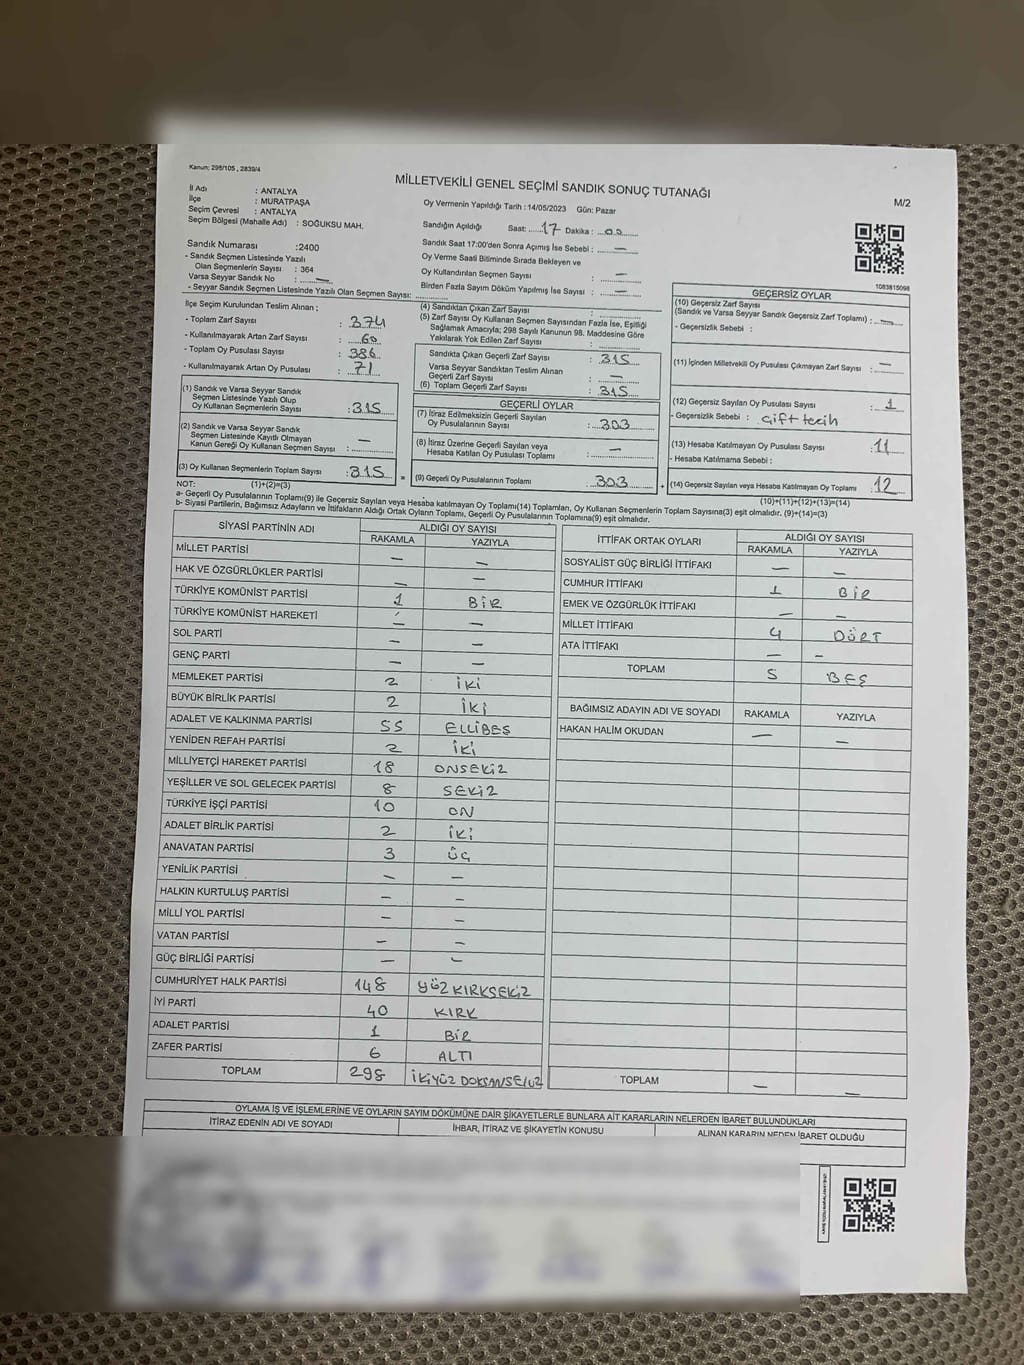 Kanun: 298/105 , 2839/4
MİLLETVEKİLİ GENEL SEÇİMİ SANDIK SONUÇ TUTANAĞI
M/2
İl Adı : ANTALYA
İlçe : MURATPAŞA
Seçim Çevresi : ANTALYA
Seçim Bölgesi (Mahalle Adı) : SOĞUKSU MAH.
Oy Vermenin Yapıldığı Tarih : 14/05/2023 Gün: Pazar
Sandığın Açıldığı Saat: 17 Dakika : 00
Sandık Saat 17:00'den Sonra Açımış İse Sebebi : —
Oy Verme Saati Bitiminde Sırada Bekleyen ve
Oy Kullandırılan Seçmen Sayısı : —
Birden Fazla Sayım Döküm Yapılmış İse Sayısı : —
1083815098
Sandık Numarası :2400
- Sandık Seçmen Listesinde Yazılı
Olan Seçmenlerin Sayısı : 364
Varsa Seyyar Sandık No : —
- Seyyar Sandık Seçmen Listesinde Yazılı Olan Seçmen Sayısı:
İlçe Seçim Kurulundan Teslim Alınan :
- Toplam Zarf Sayısı : 374
- Kullanılmayarak Artan Zarf Sayısı : 60
- Toplam Oy Pusulası Sayısı : 386
- Kullanılmayarak Artan Oy Pusulası : 71
(1) Sandık ve Varsa Seyyar Sandık
Seçmen Listesinde Yazılı Olup
Oy Kullanan Seçmenlerin Sayısı :315
(2) Sandık ve Varsa Seyyar Sandık
Seçmen Listesinde Kayıtlı Olmayan
Kanun Gereği Oy Kullanan Seçmen Sayısı : —
(3) Oy Kullanan Seçmenlerin Toplam Sayısı :315
(4) Sandıktan Çıkan Zarf Sayısı :
(5) Zarf Sayısı Oy Kullanan Seçmen Sayısından Fazla İse, Eşitliği
Sağlamak Amacıyla; 298 Sayılı Kanunun 98. Maddesine Göre
Yakılarak Yok Edilen Zarf Sayısı :
Sandıkta Çıkan Geçerli Zarf Sayısı : 315
Varsa Seyyar Sandıktan Teslim Alınan
Geçerli Zarf Sayısı : —
(6) Toplam Geçerli Zarf Sayısı : 315
GEÇERLİ OYLAR
(7) İtiraz Edilmeksizin Geçerli Sayılan
Oy Pusulasının Sayısı : 303
(8) İtiraz Üzerine Geçerli Sayılan veya
Hesaba Katılan Oy Pusulası Toplamı : —
= (9) Geçerli Oy Pusulalarının Toplamı : 303
GEÇERSİZ OYLAR
(10) Geçersiz Zarf Sayısı
(Sandık ve Varsa Seyyar Sandık Geçersiz Zarf Toplamı) : —
- Geçersizlik Sebebi :
(11) İçinden Milletvekili Oy Pusulası Çıkmayan Zarf Sayısı : —
(12) Geçersiz Sayılan Oy Pusulası Sayısı : 1
- Geçersizlik Sebebi : Çift tecih
(13) Hesaba Katılmayan Oy Pusulası Sayısı : 11
- Hesaba Katılmama Sebebi :
+ (14) Geçersiz Sayılan veya Hesaba Katılmayan Oy Toplamı : 12
NOT: (1)+(2)=(3) (10)+(11)+(12)+(13)=(14)
a- Geçerli Oy Pusulalarının Toplamı(9) ile Geçersiz Sayılan veya Hesaba katılmayan Oy Toplamı(14) Toplamları, Oy Kullanan Seçmenlerin Toplam Sayısına(3) eşit olmalıdır. (9)+(14)=(3)
b- Siyasi Partilerin, Bağımsız Adayların ve İttifakların Aldığı Ortak Oyların Toplamı, Geçerli Oy Pusulalarının Toplamına(9) eşit olmalıdır.
SİYASİ PARTİNİN ADI ALDIĞI OY SAYISI
RAKAMLA YAZIYLA
MİLLET PARTİSİ — —
HAK VE ÖZGÜRLÜKLER PARTİSİ — —
TÜRKİYE KOMÜNİST PARTİSİ 1 BİR
TÜRKİYE KOMÜNİST HAREKETİ — —
SOL PARTİ — —
GENÇ PARTİ — —
MEMLEKET PARTİSİ 2 İKİ
BÜYÜK BİRLİK PARTİSİ 2 İKİ
ADALET VE KALKINMA PARTİSİ 55 ELLİBEŞ
YENİDEN REFAH PARTİSİ 2 İKİ
MİLLİYETÇİ HAREKET PARTİSİ 18 ONSEKİZ
YEŞİLLER VE SOL GELECEK PARTİSİ 8 SEKİZ
TÜRKİYE İŞÇİ PARTİSİ 10 ON
ADALET BİRLİK PARTİSİ 2 İKİ
ANAVATAN PARTİSİ 3 ÜÇ
YENİLİK PARTİSİ — —
HALKIN KURTULUŞ PARTİSİ — —
MİLLİ YOL PARTİSİ — —
VATAN PARTİSİ — —
GÜÇ BİRLİĞİ PARTİSİ — —
CUMHURİYET HALK PARTİSİ 148 YÜZKIRKSEKİZ
İYİ PARTİ 40 KIRK
ADALET PARTİSİ 1 BİR
ZAFER PARTİSİ 6 ALTI
TOPLAM 298 İKİYÜZ DOKSANSEKİZ
İTTİFAK ORTAK OYLARI ALDIĞI OY SAYISI
RAKAMLA YAZIYLA
SOSYALİST GÜÇ BİRLİĞİ İTTİFAKI — —
CUMHUR İTTİFAKI 1 BİR
EMEK VE ÖZGÜRLÜK İTTİFAKI — —
MİLLET İTTİFAKI 4 DÖRT
ATA İTTİFAKI — —
TOPLAM 5 BEŞ
BAĞIMSIZ ADAYIN ADI VE SOYADI RAKAMLA YAZIYLA
HAKAN HALİM OKUDAN — —
TOPLAM — —
OYLAMA İŞ VE İŞLEMLERİNE VE OYLARIN SAYIM DÖKÜMÜNE DAİR ŞİKAYETLERLE BUNLARA AİT KARARLARIN NELERDEN İBARET BULUNDUKLARI
İTİRAZ EDENİN ADI VE SOYADI İHBAR, İTİRAZ VE ŞİKAYETİN KONUSU ALINAN KARARIN NEDEN İBARET OLDUĞU